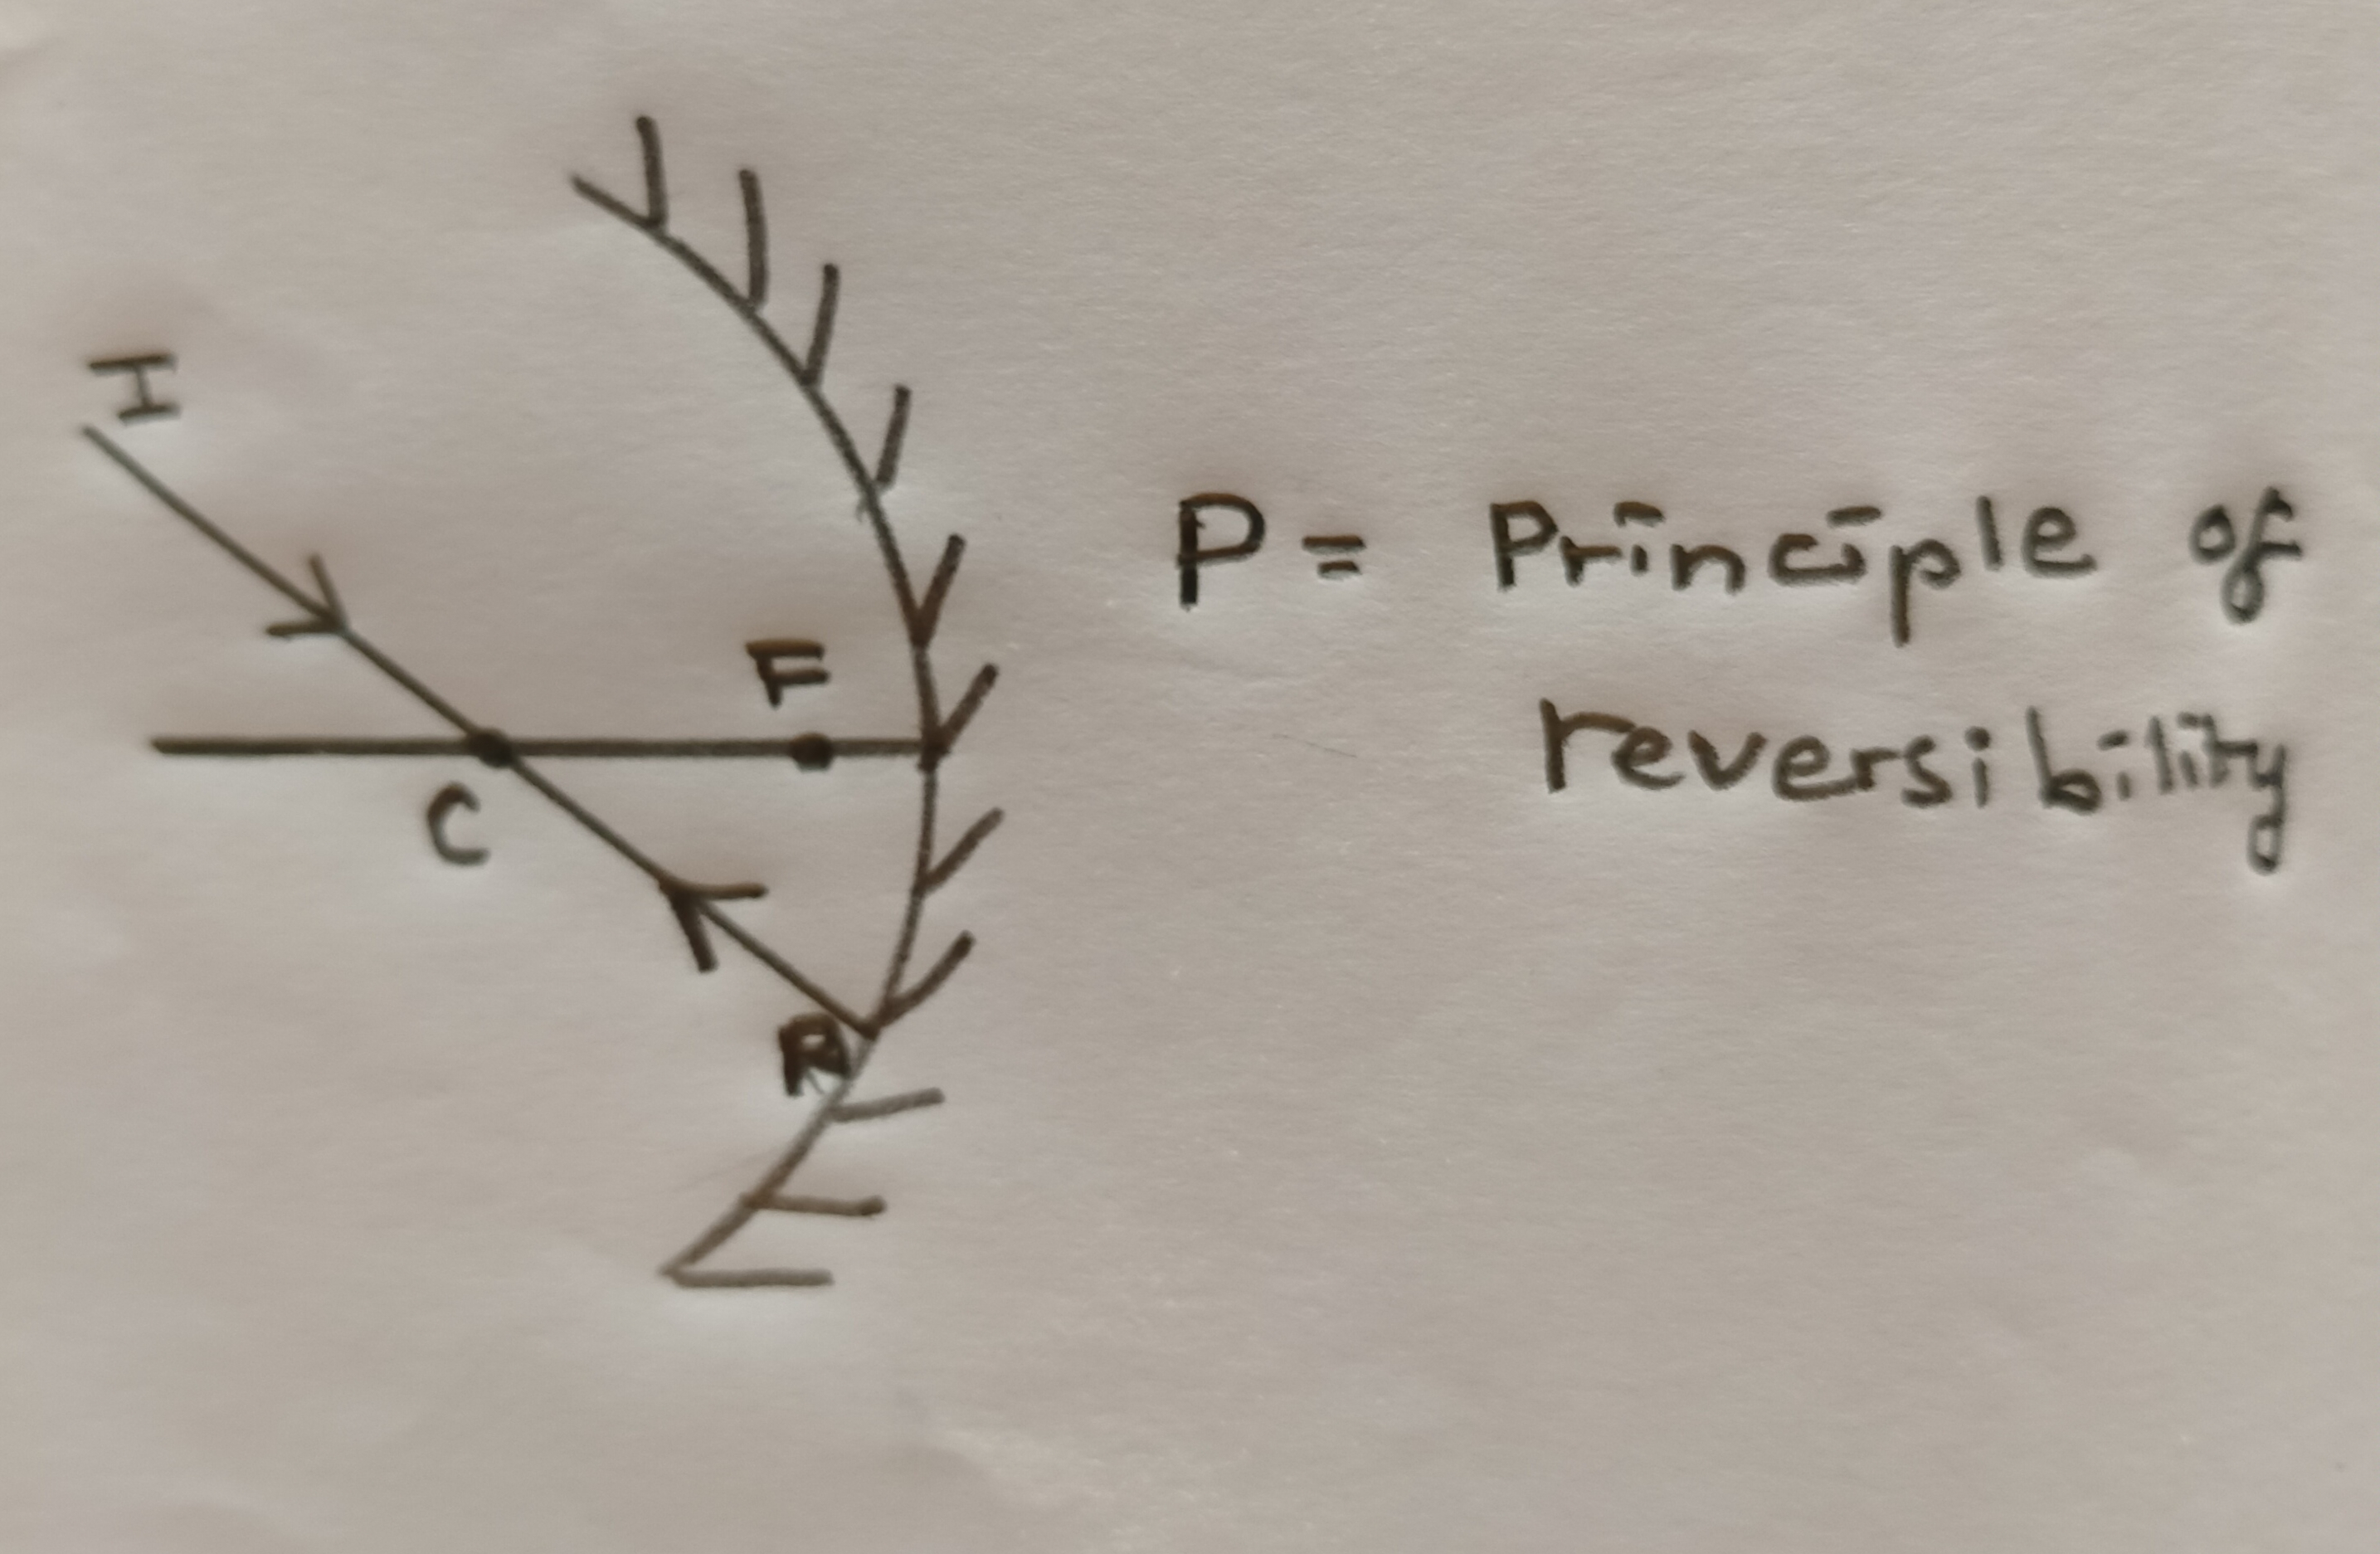 I
F
C
R
P = Principle of
reversibility